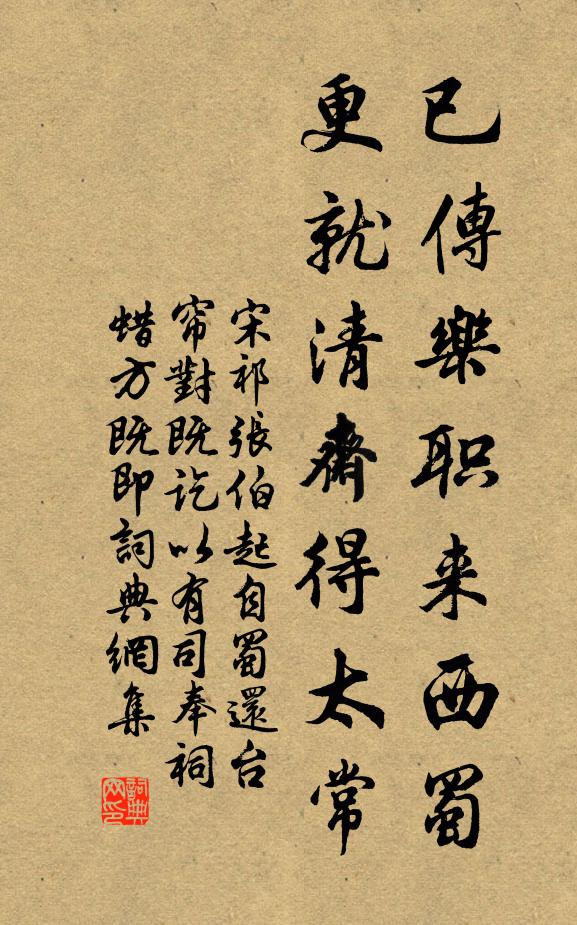 已傳樂职来西蜀
更就清齋得太常
宋祁張伯起自蜀還台
帘對既訖以有司奉祠
蜡方既即詞典網集
詞典网印